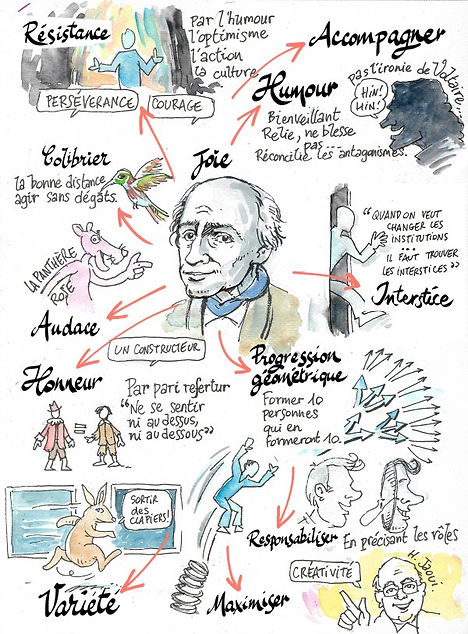 Résistance
par l'humour
l'optimisme
l'action
la culture
PERSÉVÉRANCE
COURAGE
Accompagner
Humour
pas l'ironie de Voltaire...
HIN!
HIN!
Bienveillant
Relie, ne blesse
pas...
Réconcilie les antagonismes.
Colibrier
la bonne distance,
agir sans dégats.
Joie
LA PANTHÈRE
ROSE
"QUAND ON VEUT
CHANGER LES
INSTITUTIONS
...
IL FAUT TROUVER
LES INTERSTICES"
Interstice
Audace
UN CONSTRUCTEUR
Honneur
Par pari refertur
"Ne se sentir
ni au dessus,
ni au dessous"
=
Progression
géométrique
Former 10
personnes
qui en
formeront 10.
SORTIR
des
CLAPIERS!
Variété
Maximiser
Responsabiliser
En précisant les rôles
CRÉATIVITÉ
H. Jaoui